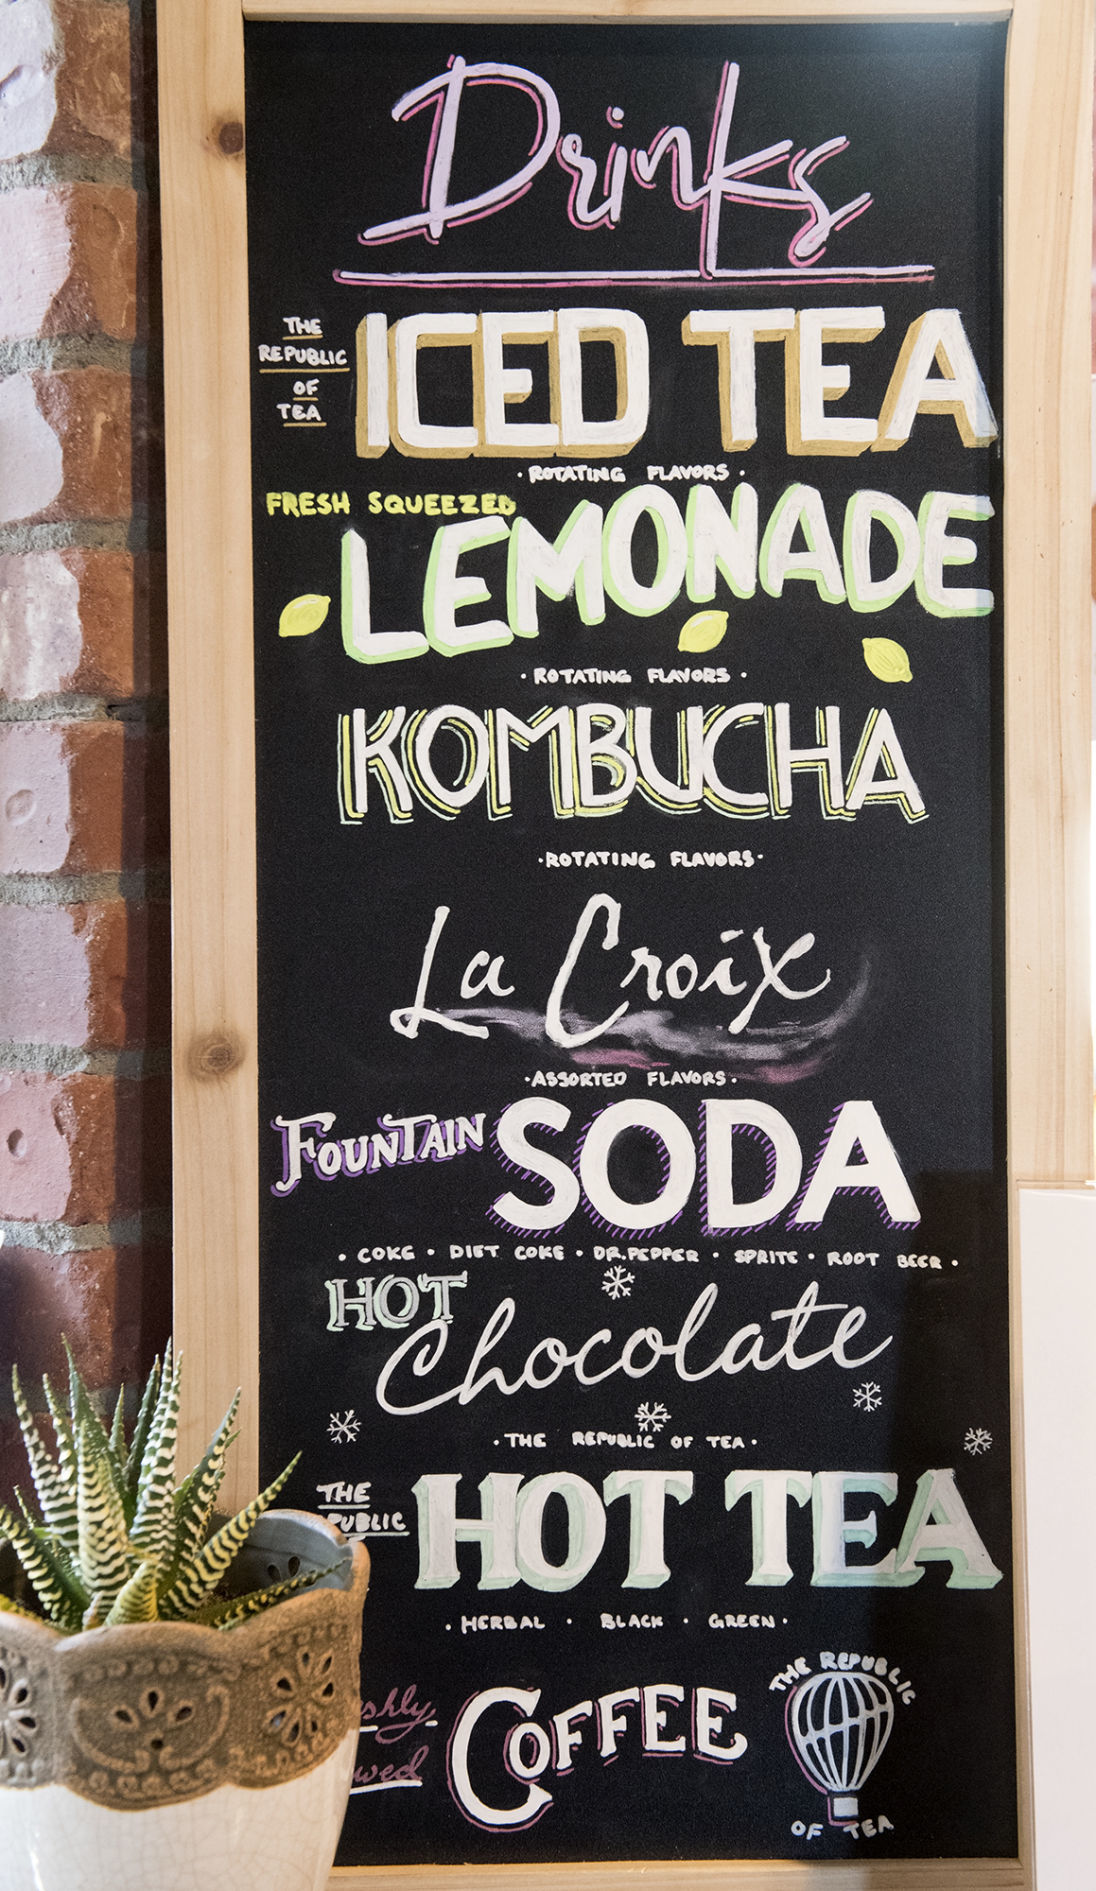 Drinks
THE
REPUBLIC
OF
TEA
ICED TEA
· ROTATING FLAVORS ·
FRESH SQUEEZED
LEMONADE
· ROTATING FLAVORS ·
KOMBUCHA
· ROTATING FLAVORS ·
La Croix
· ASSORTED FLAVORS ·
FOUNTAIN SODA
· COKE · DIET COKE · DR. PEPPER · SPRITE · ROOT BEER ·
HOT
Chocolate
· THE REPUBLIC OF TEA ·
THE
HOT TEA
· HERBAL · BLACK · GREEN ·
COFFEE
THE REPUBLIC
OF TEA